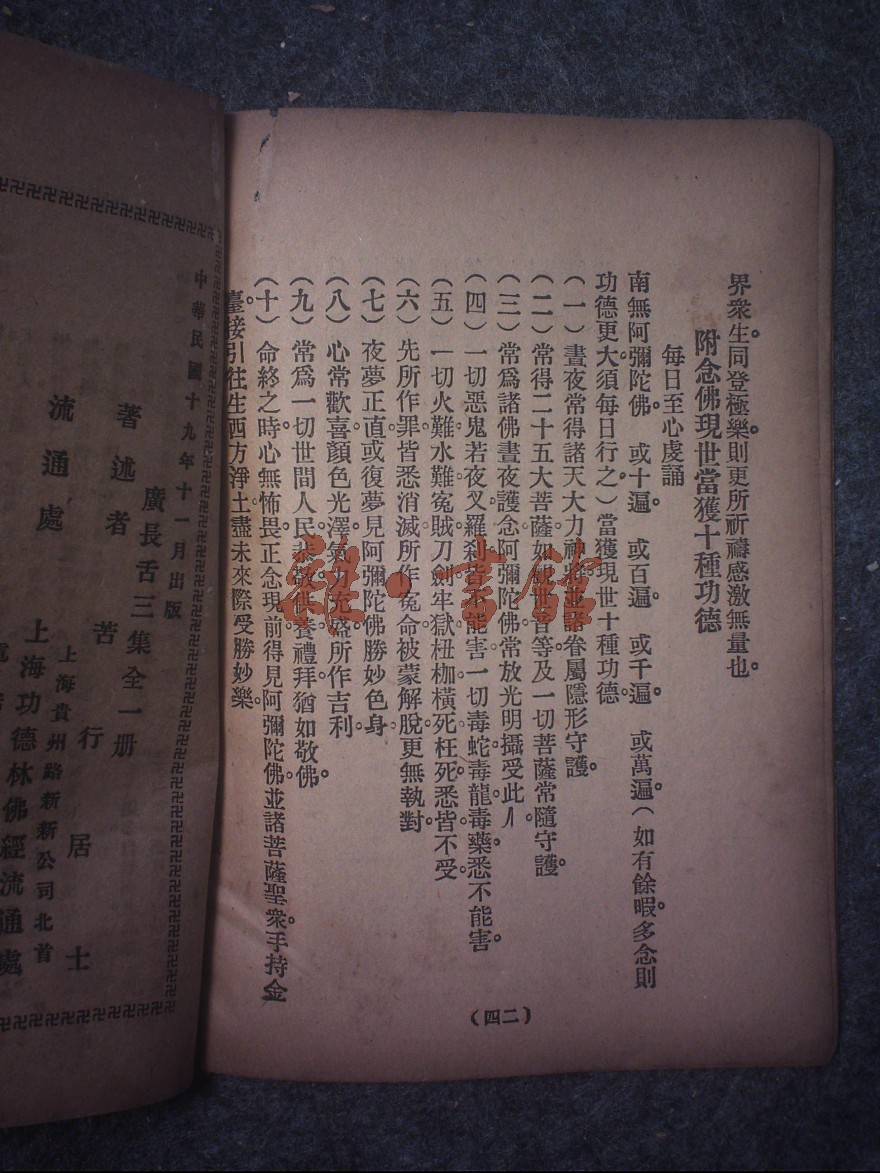 界衆生。同登極樂。則更所祈禱感激無量也。
附念佛現世當獲十種功德
每日至心虔誦
南無阿彌陀佛。 或十遍。 或百遍。 或千遍。 或萬遍。(如有餘暇。多念則
功德更大。須每日行之。)當獲現世十種功德。
(一)晝夜常得諸天大力神將並諸眷屬隱形守護。
(二)常得二十五大菩薩。如觀世音等。及一切菩薩常隨守護。
(三)常爲諸佛晝夜護念。阿彌陀佛常放光明。攝受此人。
(四)一切惡鬼。若夜叉羅刹。皆不能害。一切毒蛇毒龍毒藥。悉不能害。
(五)一切火難水難。寃賊刀劍。牢獄杻枷。橫死枉死。悉皆不受。
(六)先所作罪。皆悉消滅。所作寃命。被蒙解脫。更無執對。
(七)夜夢正直。或復夢見阿彌陀佛勝妙色身。
(八)心常歡喜。顏色光澤。氣力充盛。所作吉利。
(九)常爲一切世間人民。恭敬供養。禮拜猶如敬佛。
(十)命終之時。心無怖畏。正念現前。得見阿彌陀佛。並諸菩薩聖衆。手持金
臺。接引往生西方淨土。盡未來際。受勝妙樂。
(四二)
中華民國十九年十一月出版
廣長舌三集全一册
著述者 苦行居士
上海貴州路新新公司北首
流通處 上海功德林佛經流通處
雜·書館